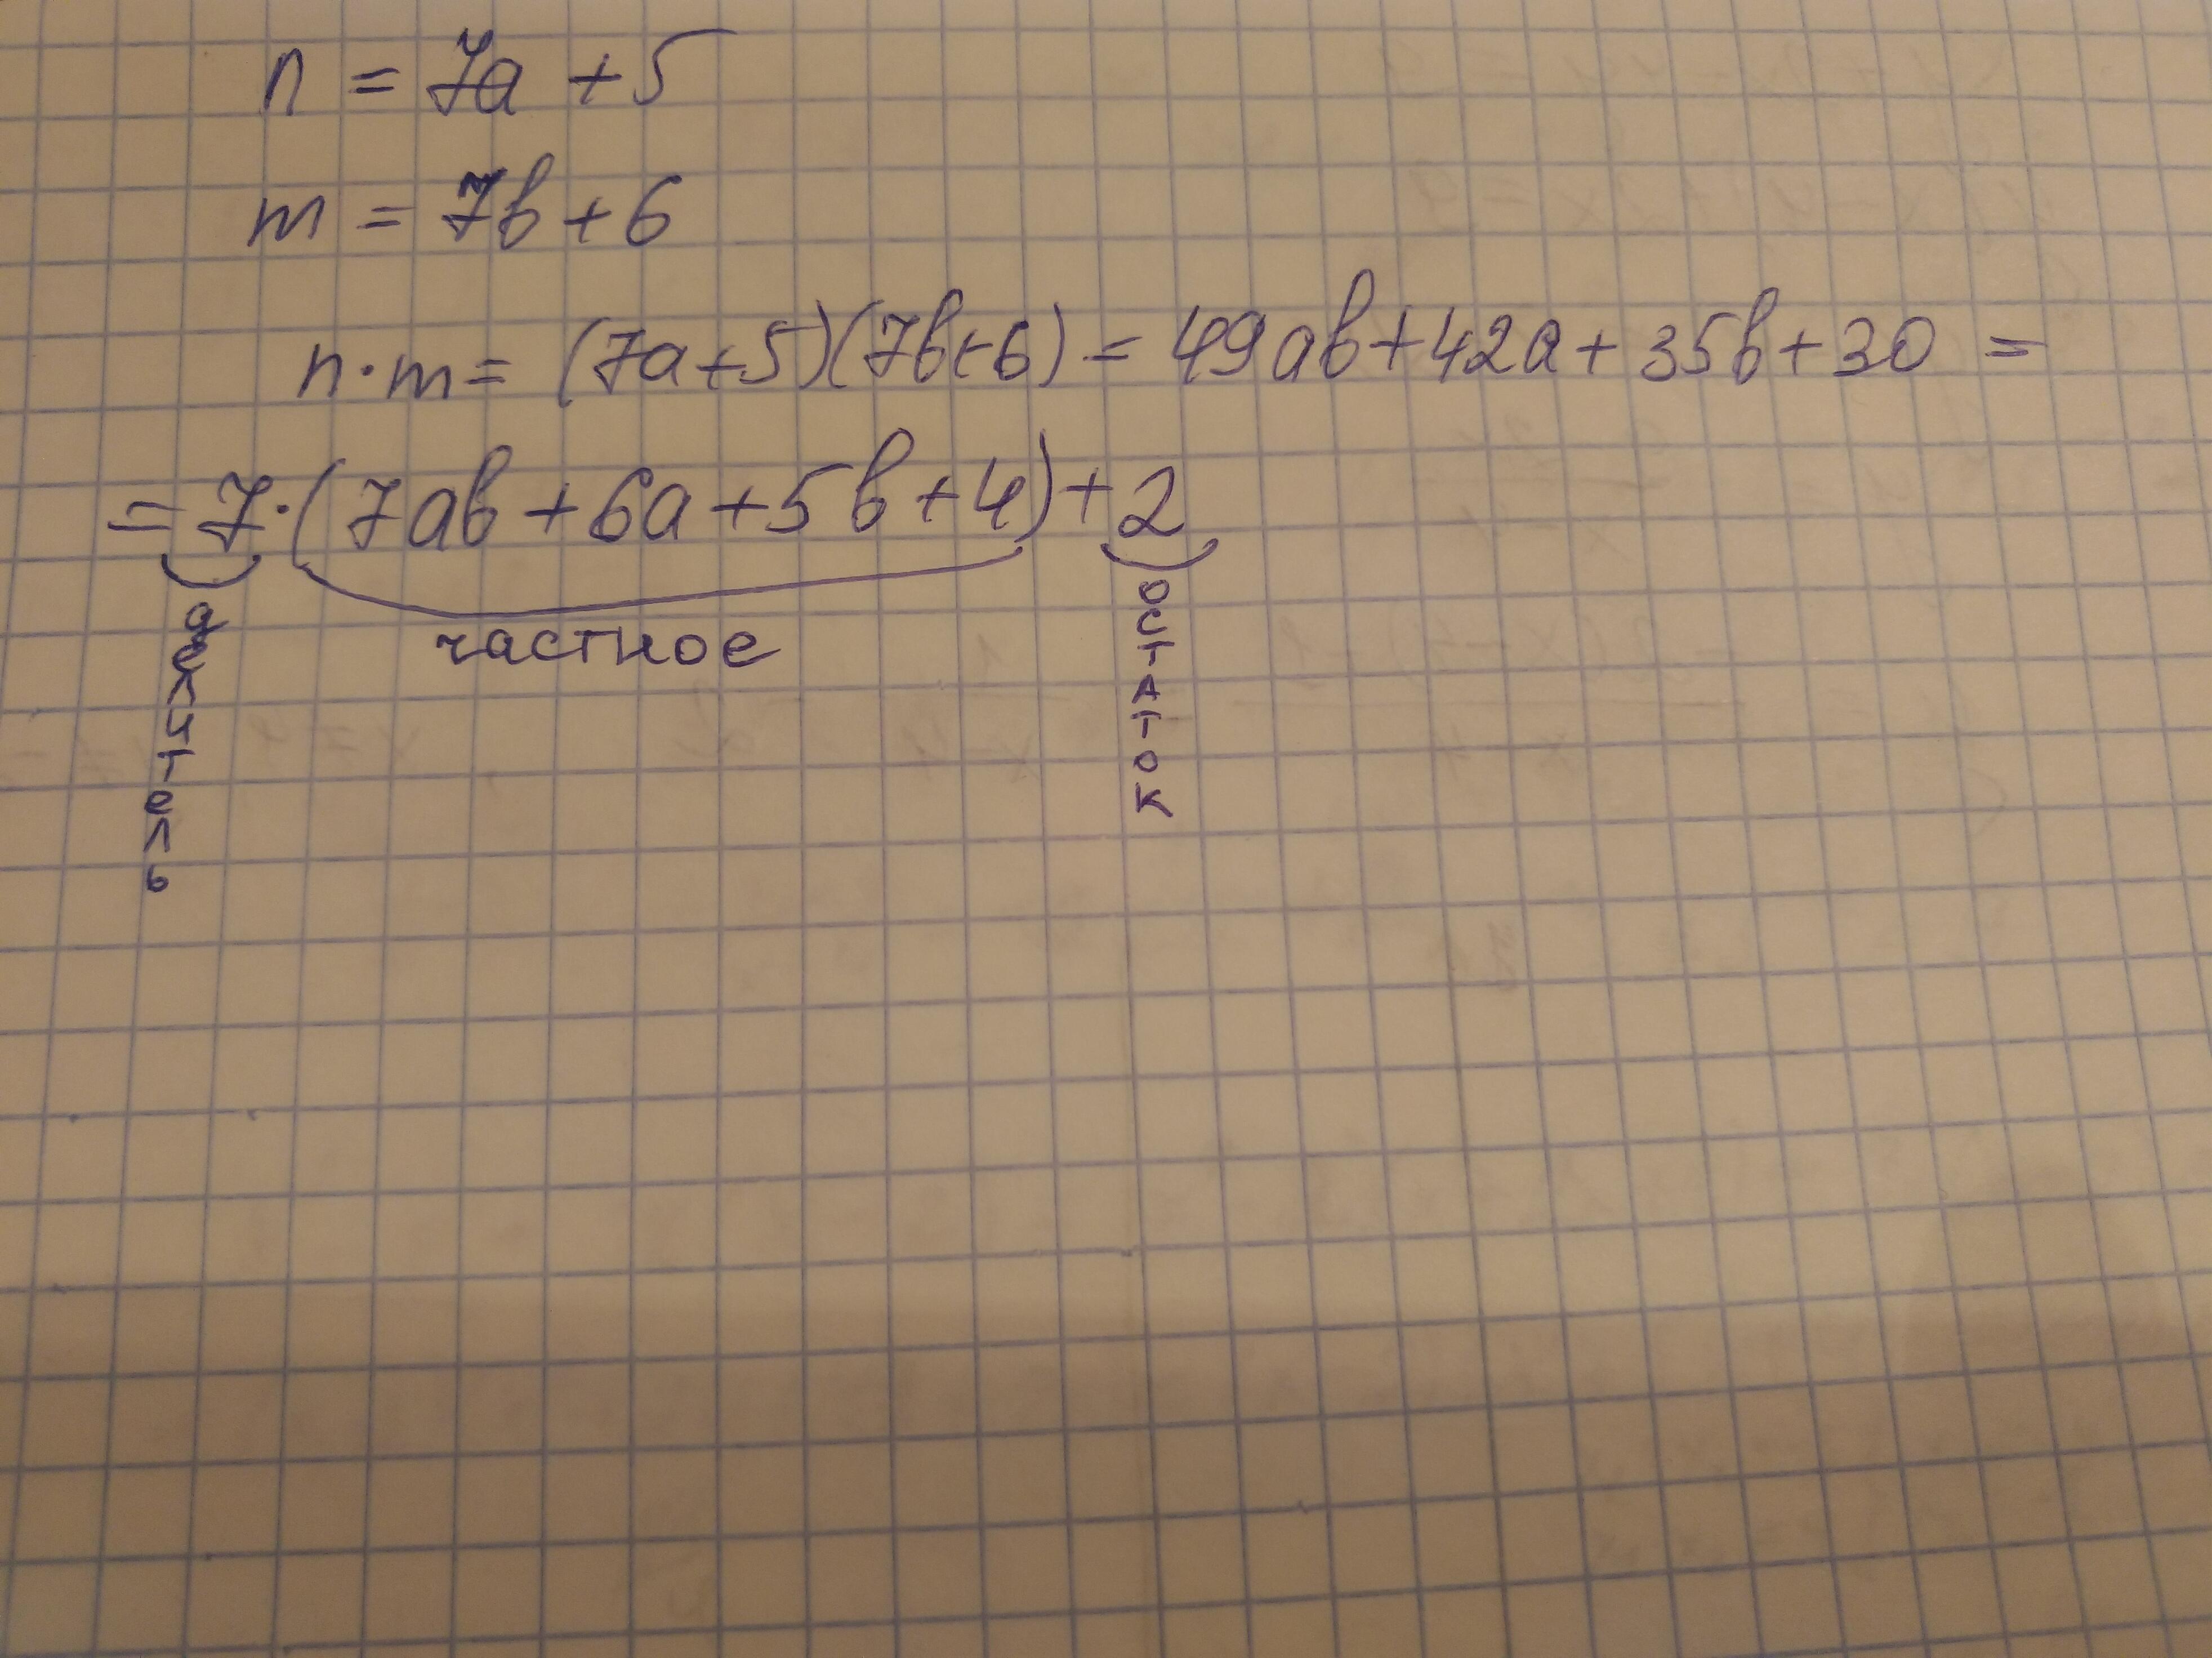 n = 7a + 5
m = 7b + 6
n · m = (7a + 5)(7b + 6) = 49ab + 42a + 35b + 30 =
= 7 · (7ab + 6a + 5b + 4) + 2
делитель
частное
остаток